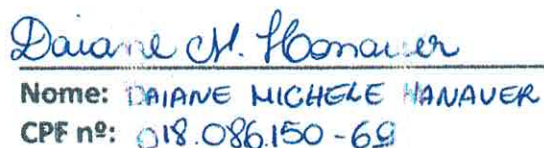 Daiane M. Honauer
Nome: DAIANE MICHELE HANAUER
CPF nº: 018.086.150-69